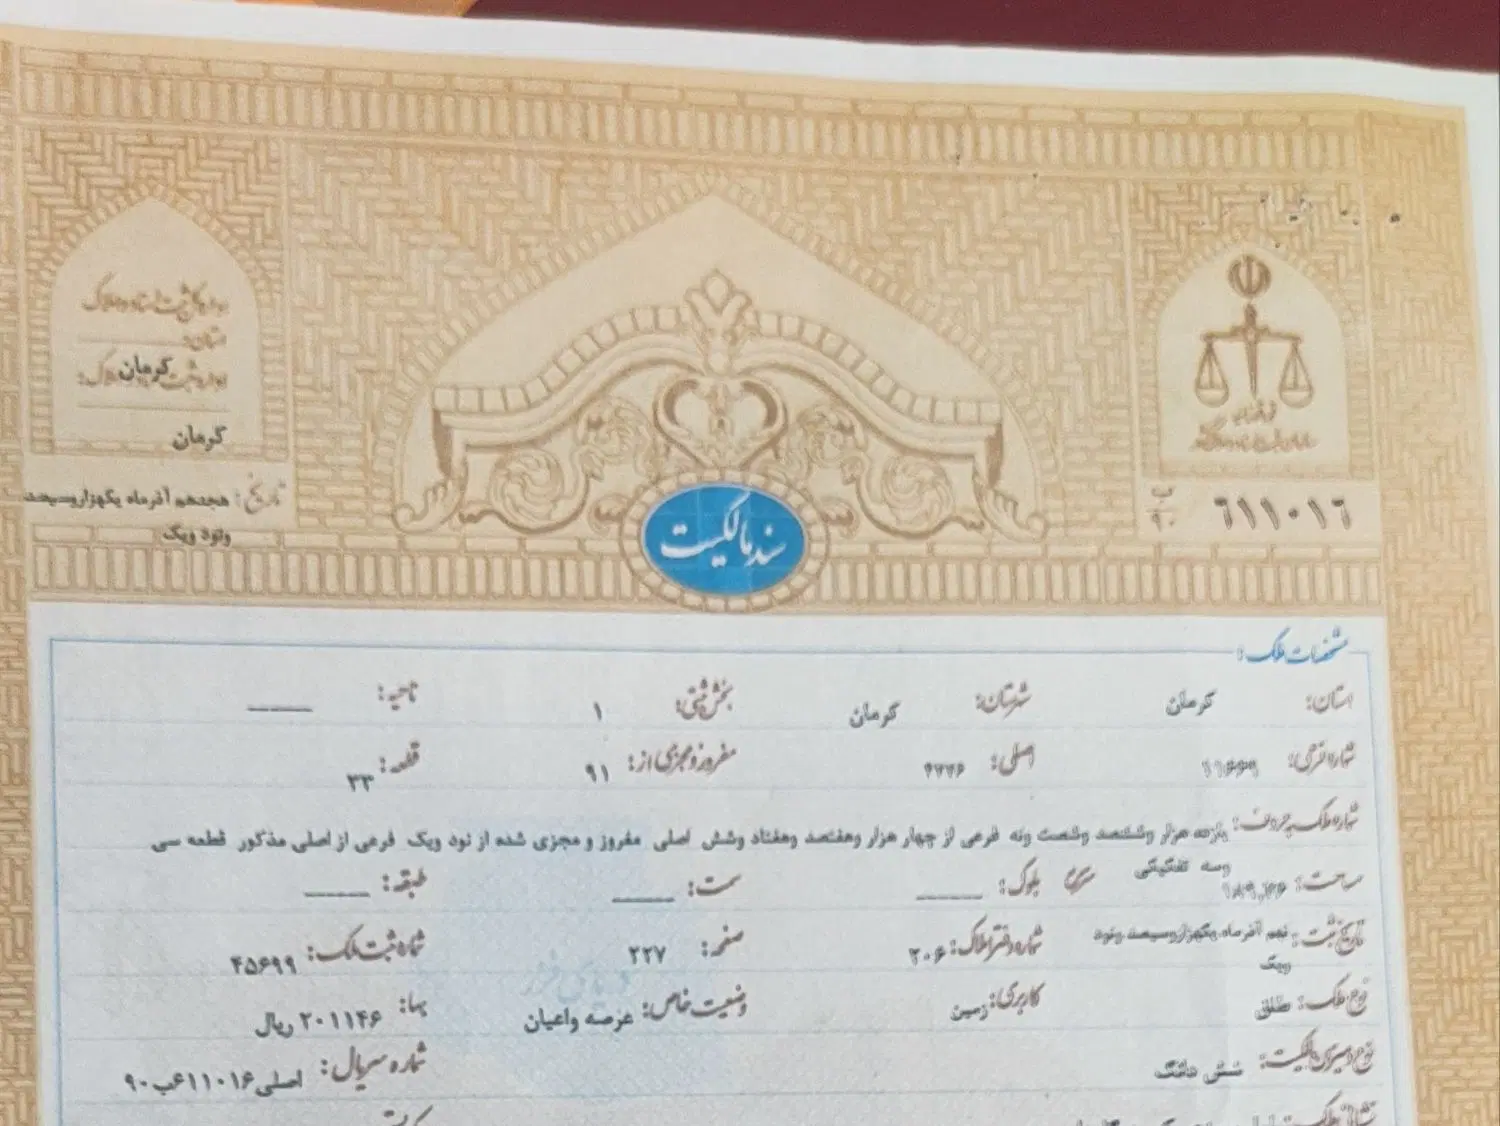 اداره کل ثبت اسناد و املاک
استان:
کرمان
اداره ثبت املاک:
کرمان
تاریخ: هجدهم آذرماه یکهزاروسیصد
ونود ویک
قوه قضائیه
۶۱۱۰۱۶
ب
۹۰
سند مالکیت
مشخصات ملک:
استان: کرمان شهرستان: کرمان بخش ثبتی: ۱ ناحیه:
شماره فرعی: ۱۱۶۶۹ اصلی: ۴۷۷۶ مفروز و مجزی از: ۹۱ قطعه: ۳۳
شماره ملک به حروف: یازده هزار وششصد وشصت ونه فرعی از چهار هزار وهفتصد وهفتاد وشش اصلی مفروز و مجزی شده از نود ویک فرعی از اصلی مذکور قطعه سی
وسه تفکیکی
مساحت: متر مربع بلوک: سمت: طبقه:
تاریخ ثبت: نهم آذرماه یکهزاروسیصد ونود
ویک
شماره دفتر املاک: ۲۰۶ صفحه: ۲۲۷ شماره ثبت ملک: ۴۵۶۹۹
نوع ملک: طلق کاربری: زمین وضعیت خاص: عرصه واعیان بها: ۲۰۱۱۴۶ ریال
نوع و میزان مالکیت: شش دانگ شماره سریال: اصلی۶۱۱۰۱۶ب۹۰